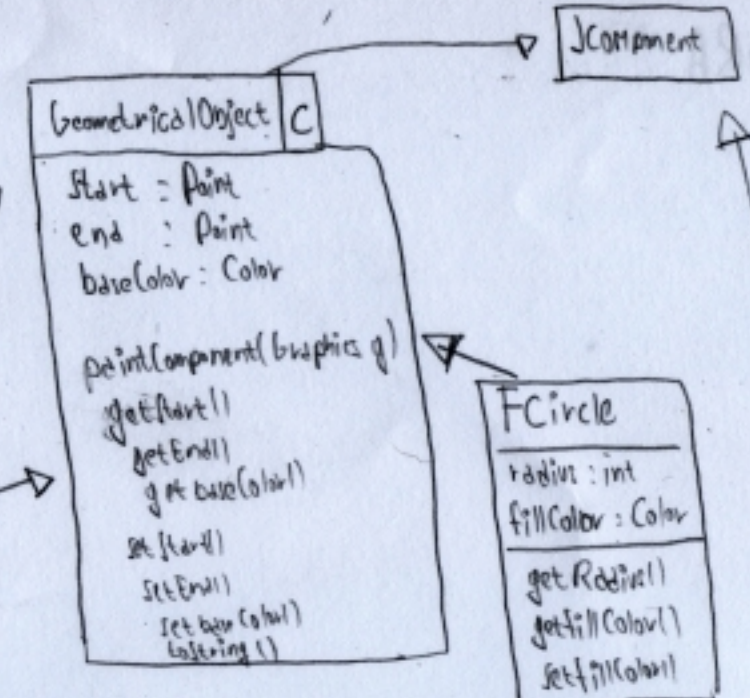 JComponent
GeometricalObject C
start : Point
end : Point
baseColor : Color
paintComponent(Graphics g)
getStart()
getEnd()
getbaseColor()
setStart()
setEnd()
setbaseColor()
toString()
FCircle
radius : int
fillColor : Color
getRadius()
getfillColor()
setfillColor()